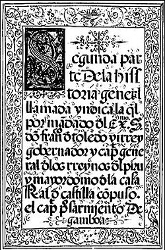 Segunda par
te de la hist
toria general
llamada yndica la ql
por mādado dl exmo sor
dō frāco d toledo virrey
gobernador y capn gene
ral d los reynos dl piru
y mayordomo d la casa
Ral d castilla cōpuso
el capn pō sarmiento De
gamboa